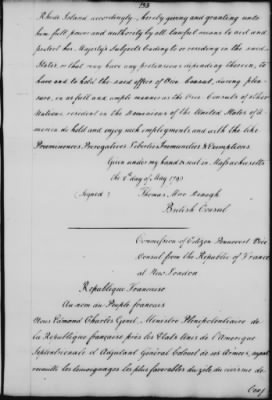 Rhode Island accordingly, hereby giving and granting unto
him full power and authority by all lawful means to aid and
protect her Majesty's Subjects trading to or residing in the said
States, or that may have any pretensions depending therein, to
have and to hold the said office of Vice Consul, during plea-
sure, in as full and ample manner as the Vice Consuls of other
Nations resident in the Dominions of the United States of A-
merica do hold and enjoy such employments, and with the like
Preeminences, Prerogatives Liberties Immunities & Exemptions
Given under my hand & seal in Massachusetts
the 2d day of May 1793
Signed
Thomas Mac Donogh
British Consul
Commission of Citizen Pennevert Vice
Consul from the Republic of France
at New London
Republique Francaise
Au nom du Peuple francais
Nous Edmond Charles Genet, Ministre Plenipotentiaire de
la République française, près les Etats Unis de l'amerique
Septentrionale et Adjutant Général Colonel de ses armées, ayant
recueilli les temoignages les plus favorables du zele du civisme de